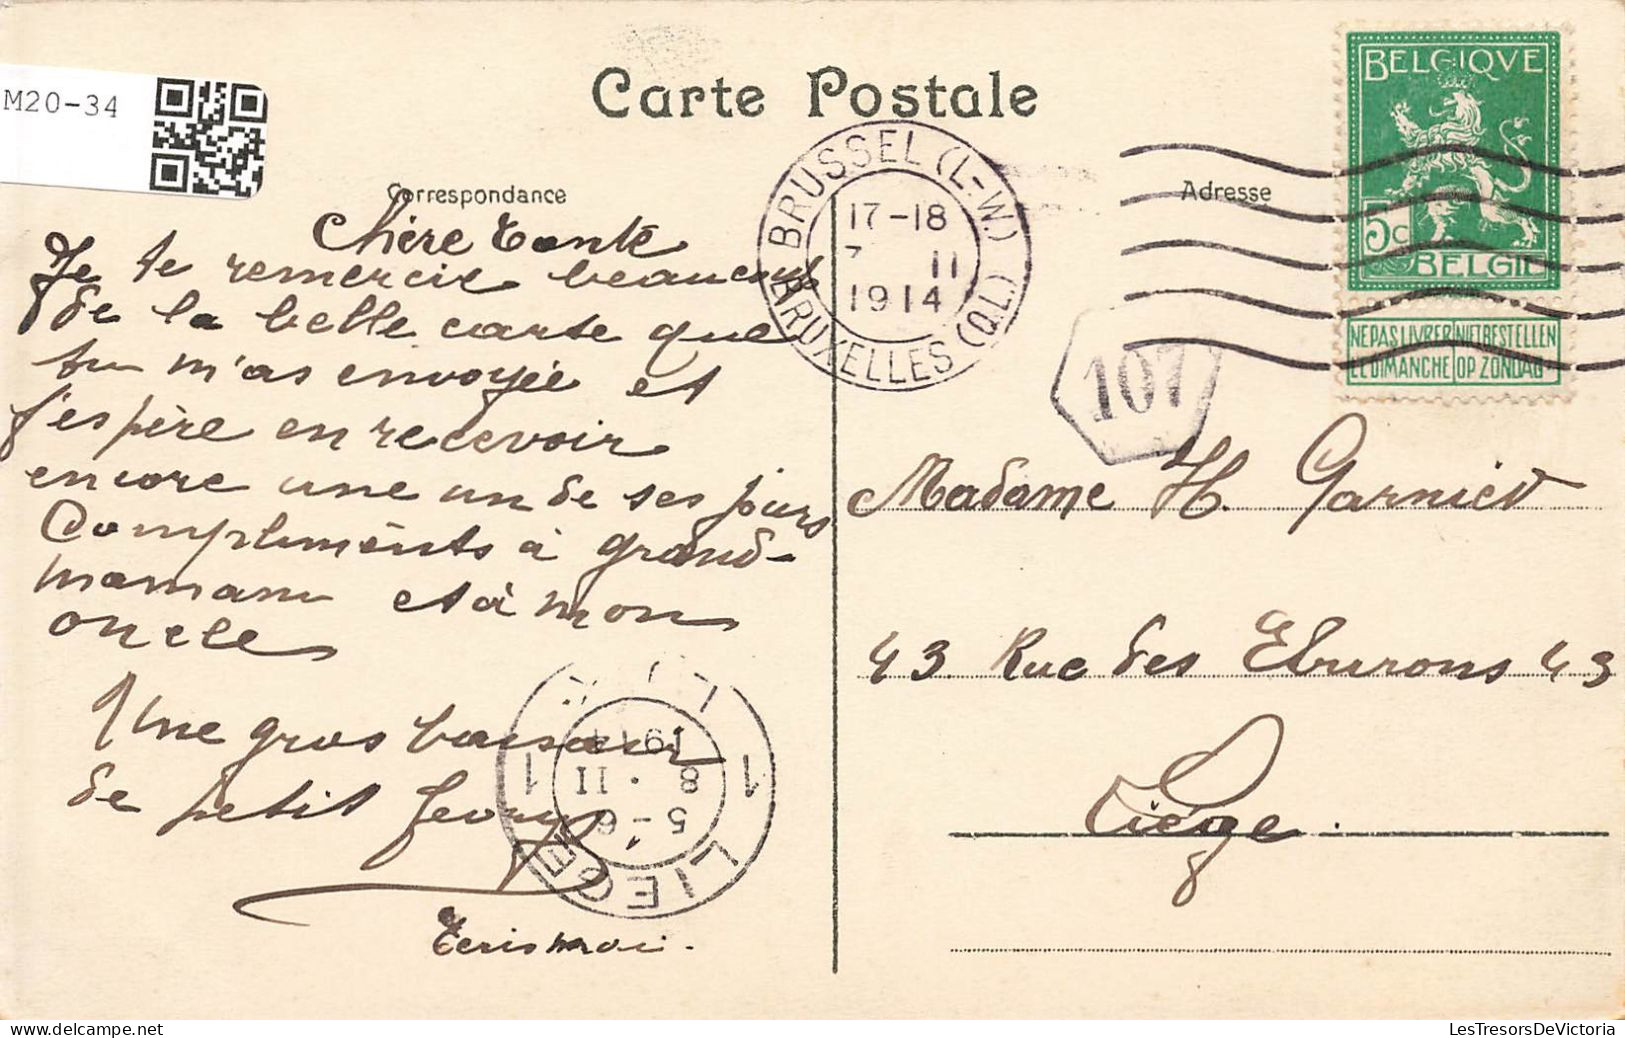 M20-34
Carte Postale
Correspondance
Chère Tante
Je te remercie beaucoup
de de la belle carte que
tu m'as envoyée et
j'espère en recevoir
encore une un de ses jours
Compliments à grand-
maman et à mon
oncle
Une gros baiser
de petit Georges
Ecris moi.
BRUSSEL (L-W.)
17-18
7 II
1914
BRUXELLES (Q.L.)
107
LIEGE
5-6
8 . II
1914
1 1
Adresse
BELGIQVE
5c
BELGIË
NE PAS LIVRER NIET BESTELLEN
LE DIMANCHE OP ZONDAG
Madame H. Garniet
43 Rue des Eburons 43
Liège.
LesTresorsDeVictoria